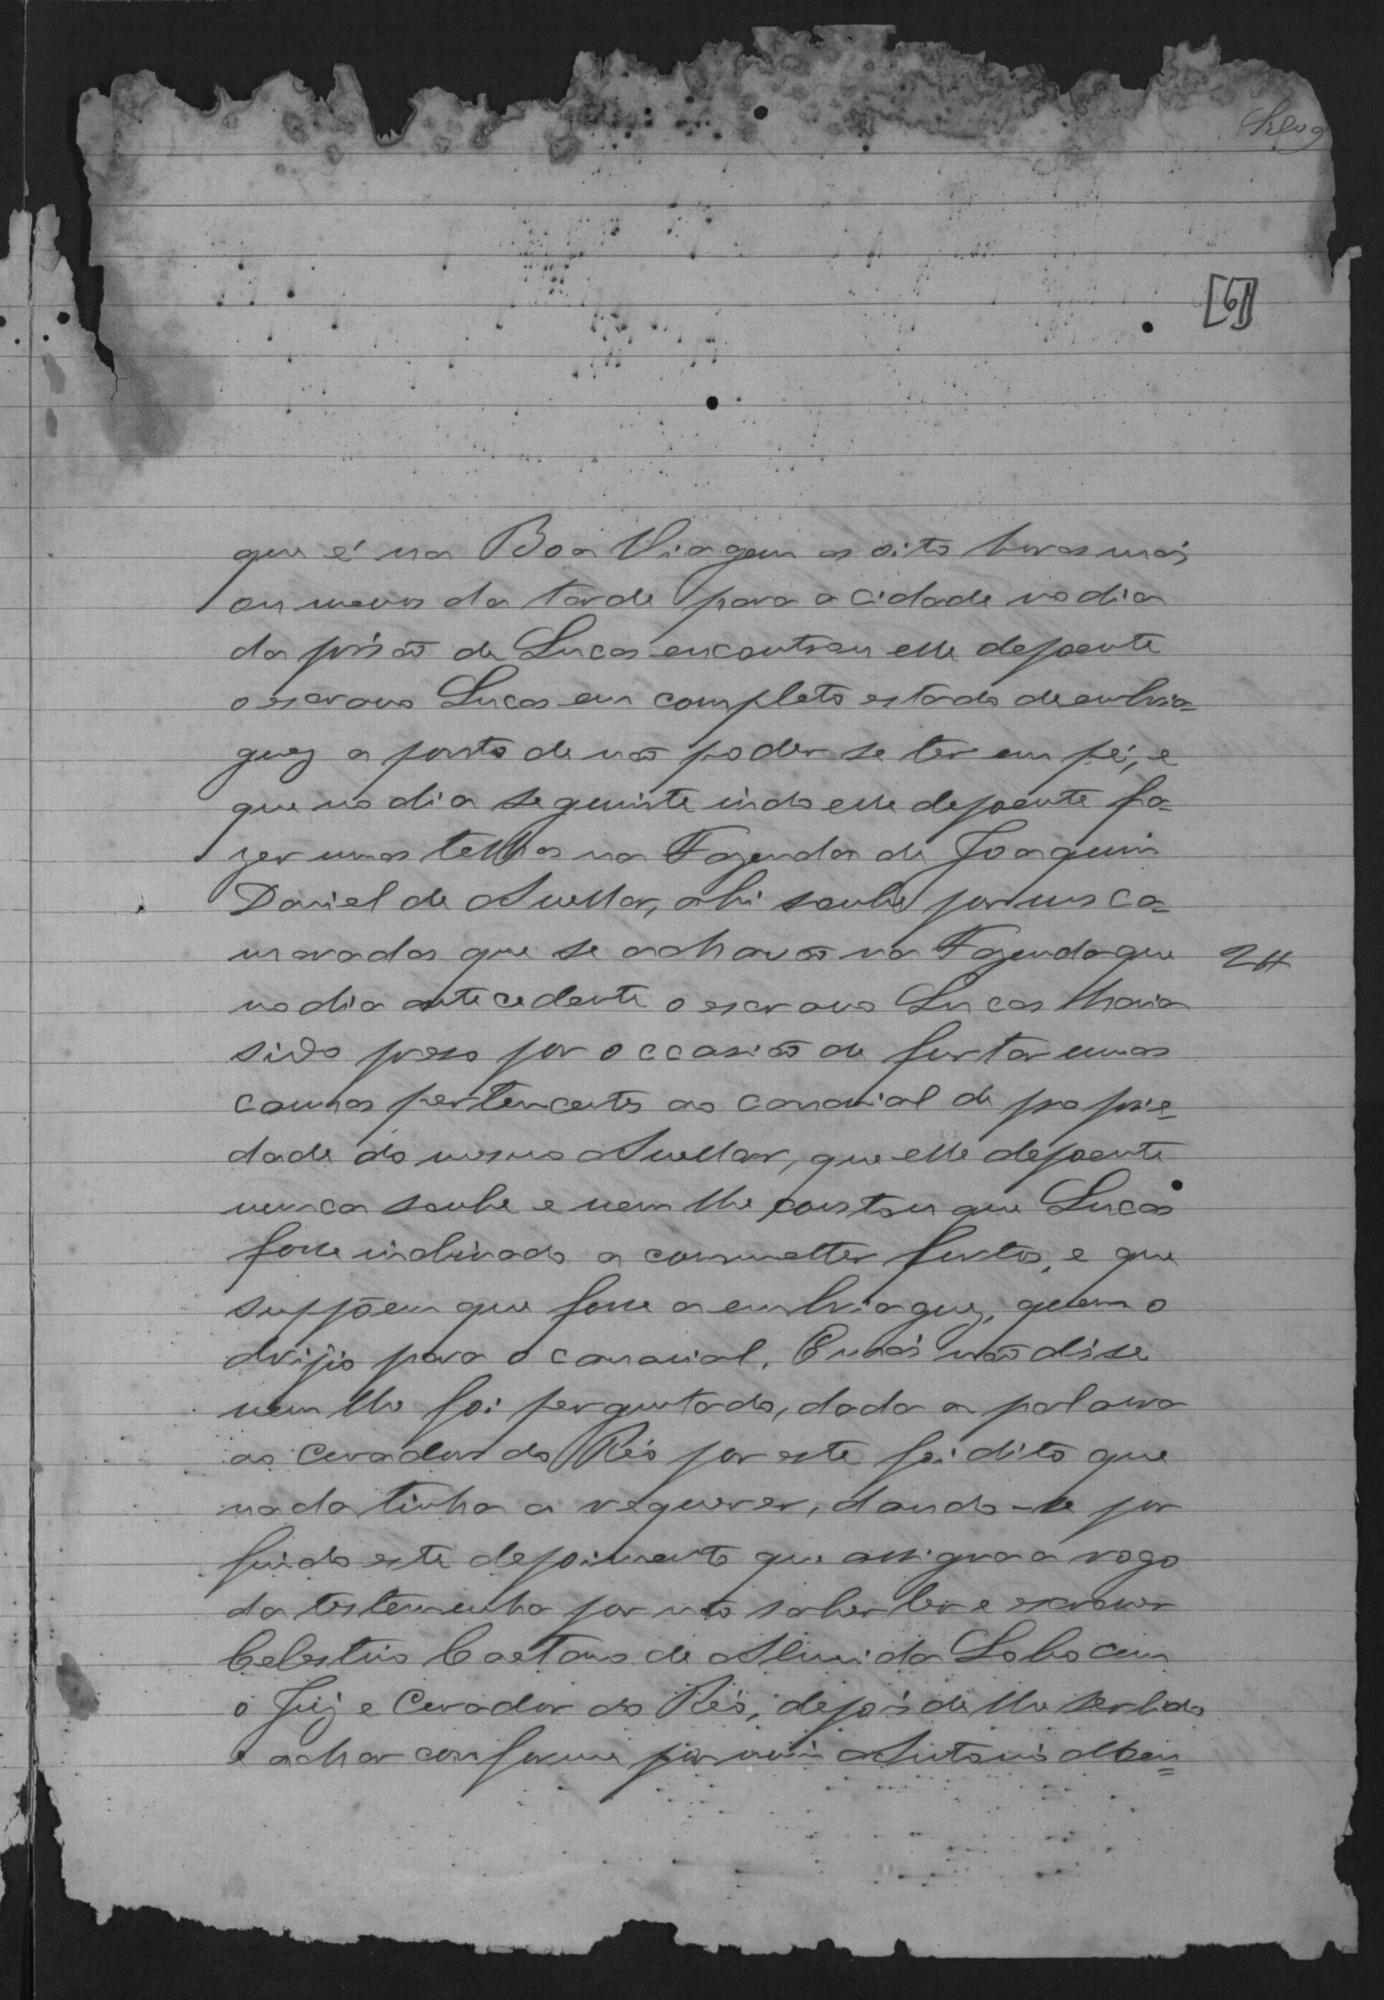 [61]
que é na Boa Viagem as oito horas mais
ou menos da tarde para a cidade no dia
da prisão de Lucas encontrou elle depoente
o escravo Lucas em completo estado de embria=
guez a ponto de não poder se ter em pé, e
que no dia seguinte indo elle depoente fa=
zer umas telhas na Fazenda de Joaquim
Daniel de Avellar, ahi soube por uns ca=
maradas que se achavão na Fazenda que
no dia antecedente o escravo Lucas havia
sido preso por occasião de furtar umas
cannas pertencentes ao canavial de proprie=
dade do mesmo Avellar, que elle depoente
nunca soube e nem lhe constou que Lucas
fosse inclinado a commetter furtos, e que
suppõem que fosse a embriaguez, quem o
dirijio para o canavial. E mais não disse
nem lhe foi perguntado, dada a palavra
ao Curador do Réo por este foi dito que
nada tinha a requerer, dando-se por
findo este depoimento que assigna a rogo
da testemunha por não saber ler e escrever
Celestino Caetano de Almeida Lobo com
o Juiz e Curador do Réo, depois de lhe ser lido
e achar conforme por mim Antonio